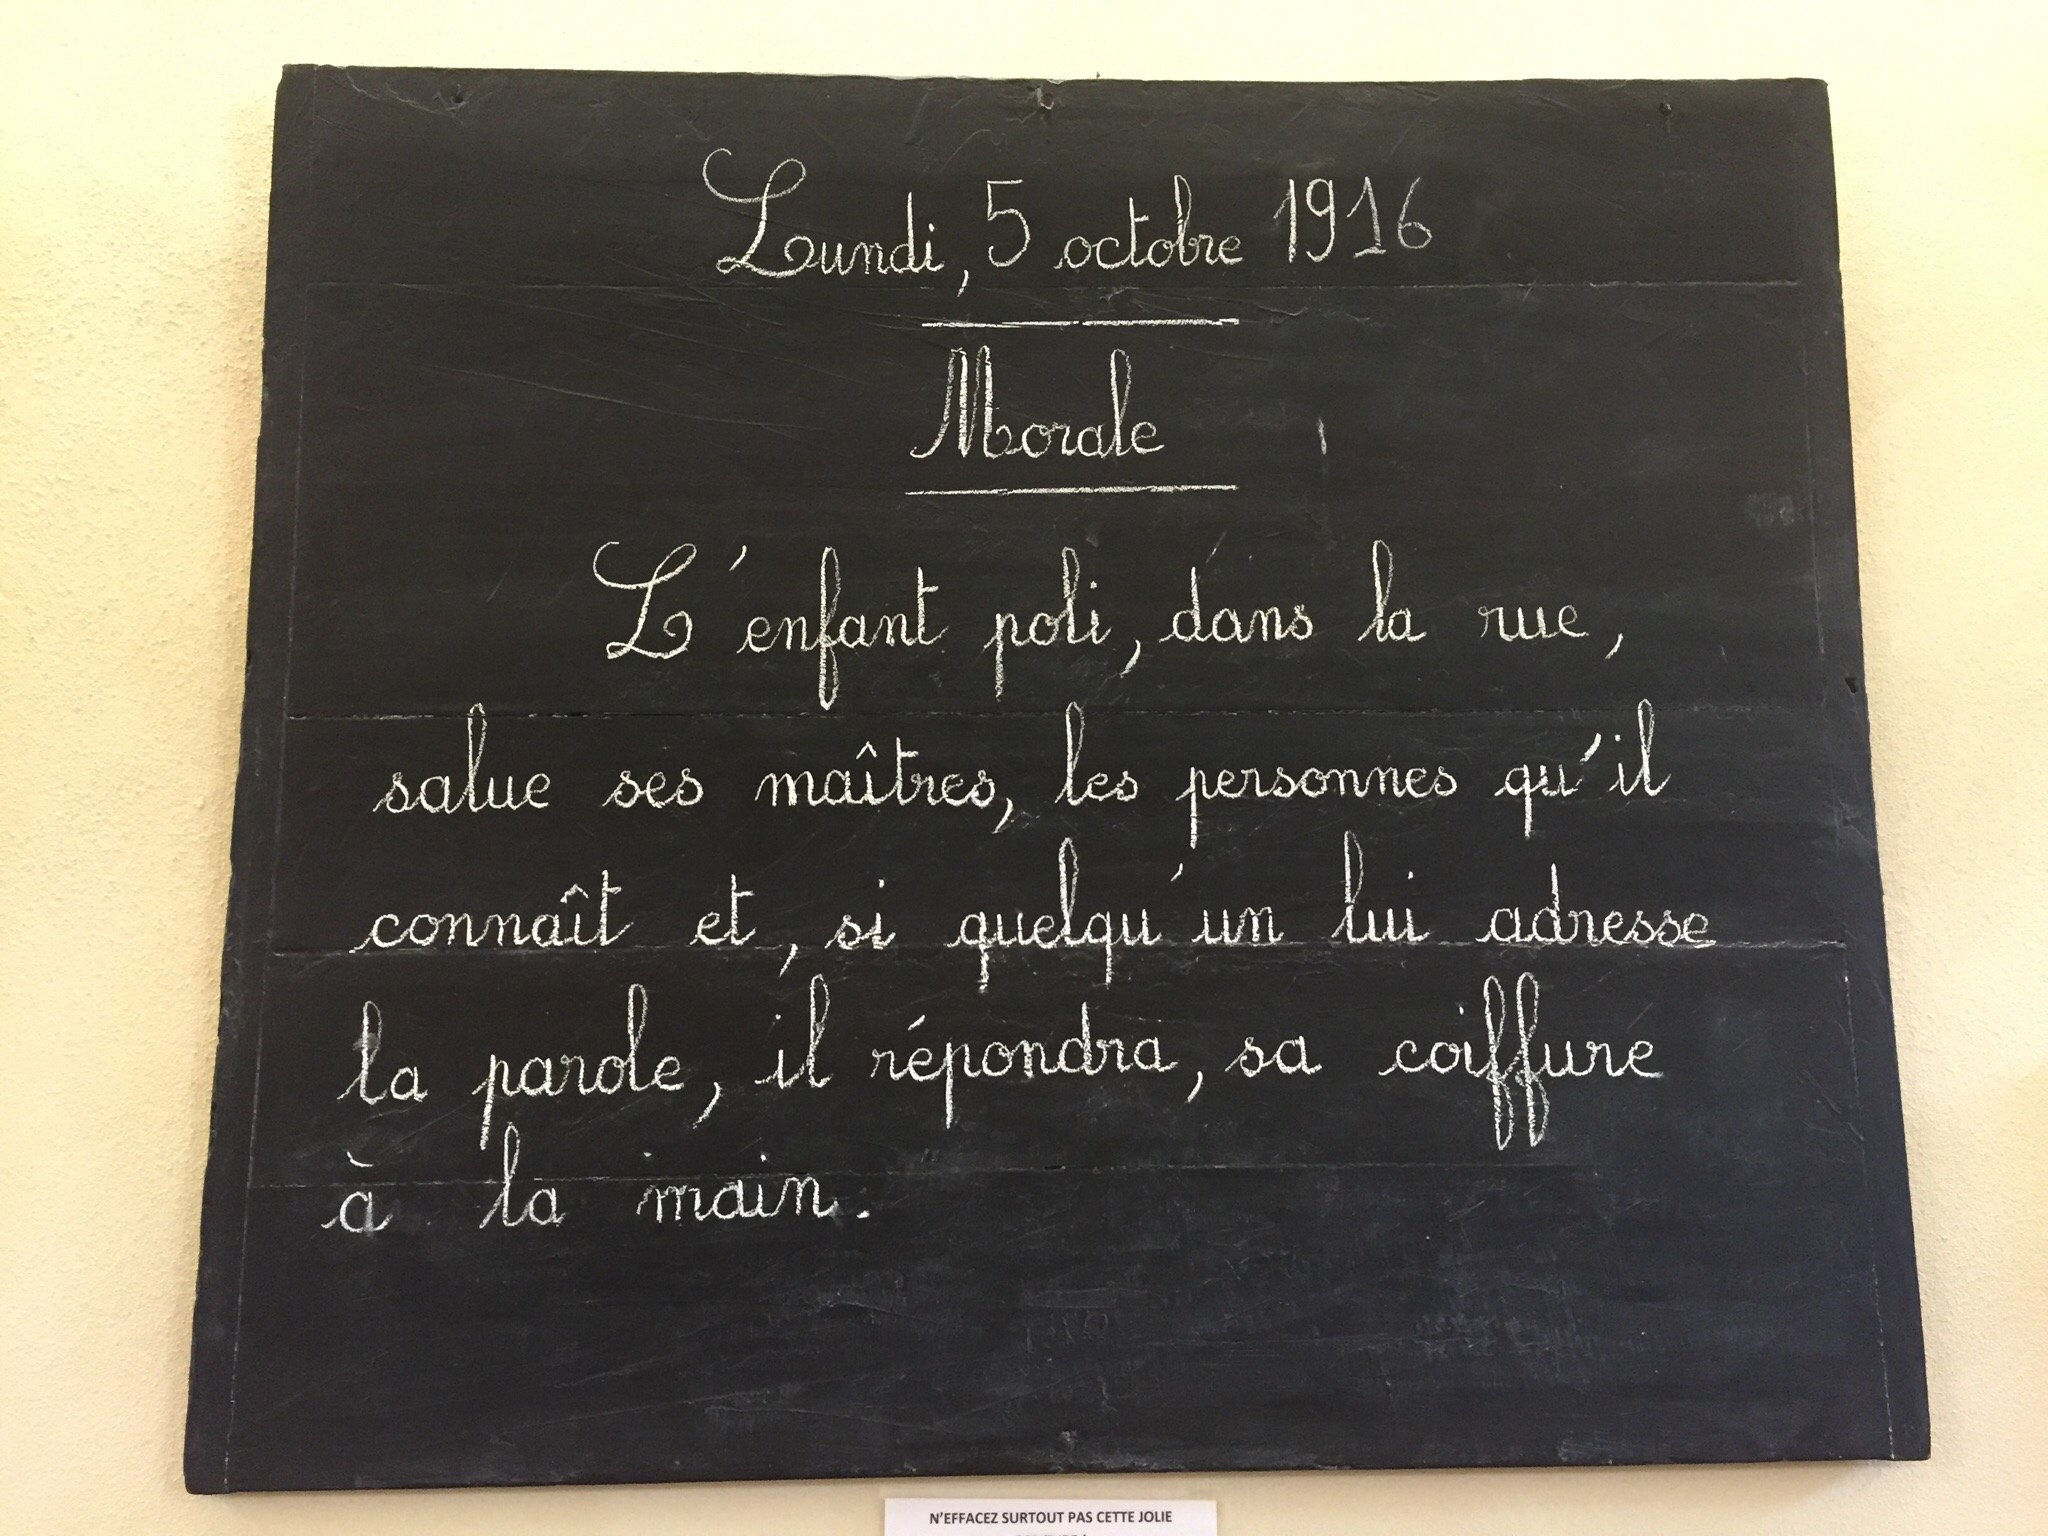 Lundi, 5 octobre 1916
Morale
L'enfant poli, dans la rue,
salue ses maîtres, les personnes qu'il
connaît et, si quelqu'un lui adresse
la parole, il répondra, sa coiffure
à la main.
N'EFFACEZ SURTOUT PAS CETTE JOLIE